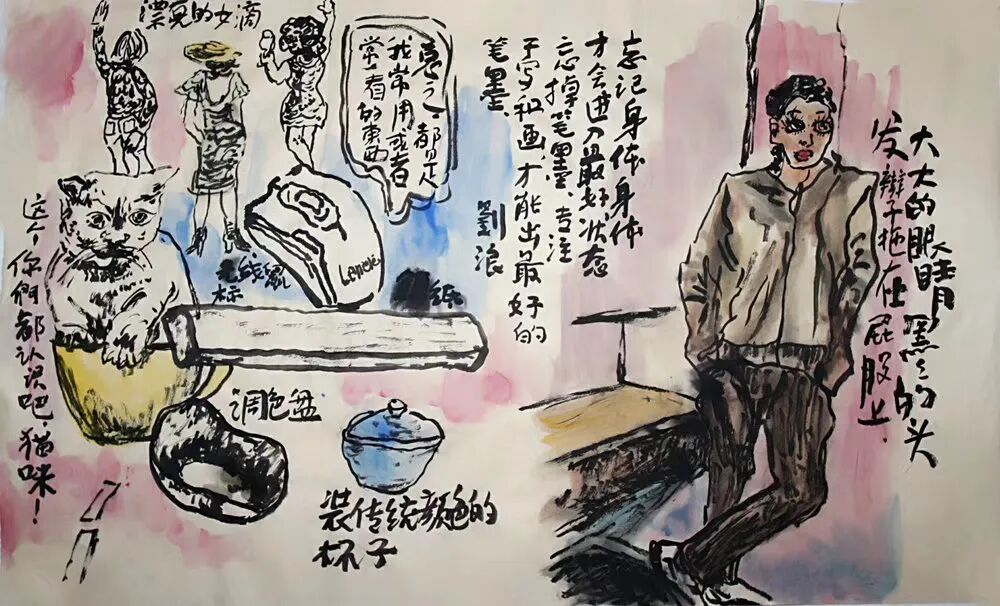 漂亮的女滴
都是
我常用或者
常看的东西
忘记身体身体
才会进入最好状态
忘掉笔墨、专注
于写和画，才能出最好的
笔墨、
劉浪
大大的眼睛 黑々的头
发 辫子拖在屁股上.
这个、你們都认识吧，猫咪！
无线鼠
标
纸
调色盆
装传统颜色的
杯子